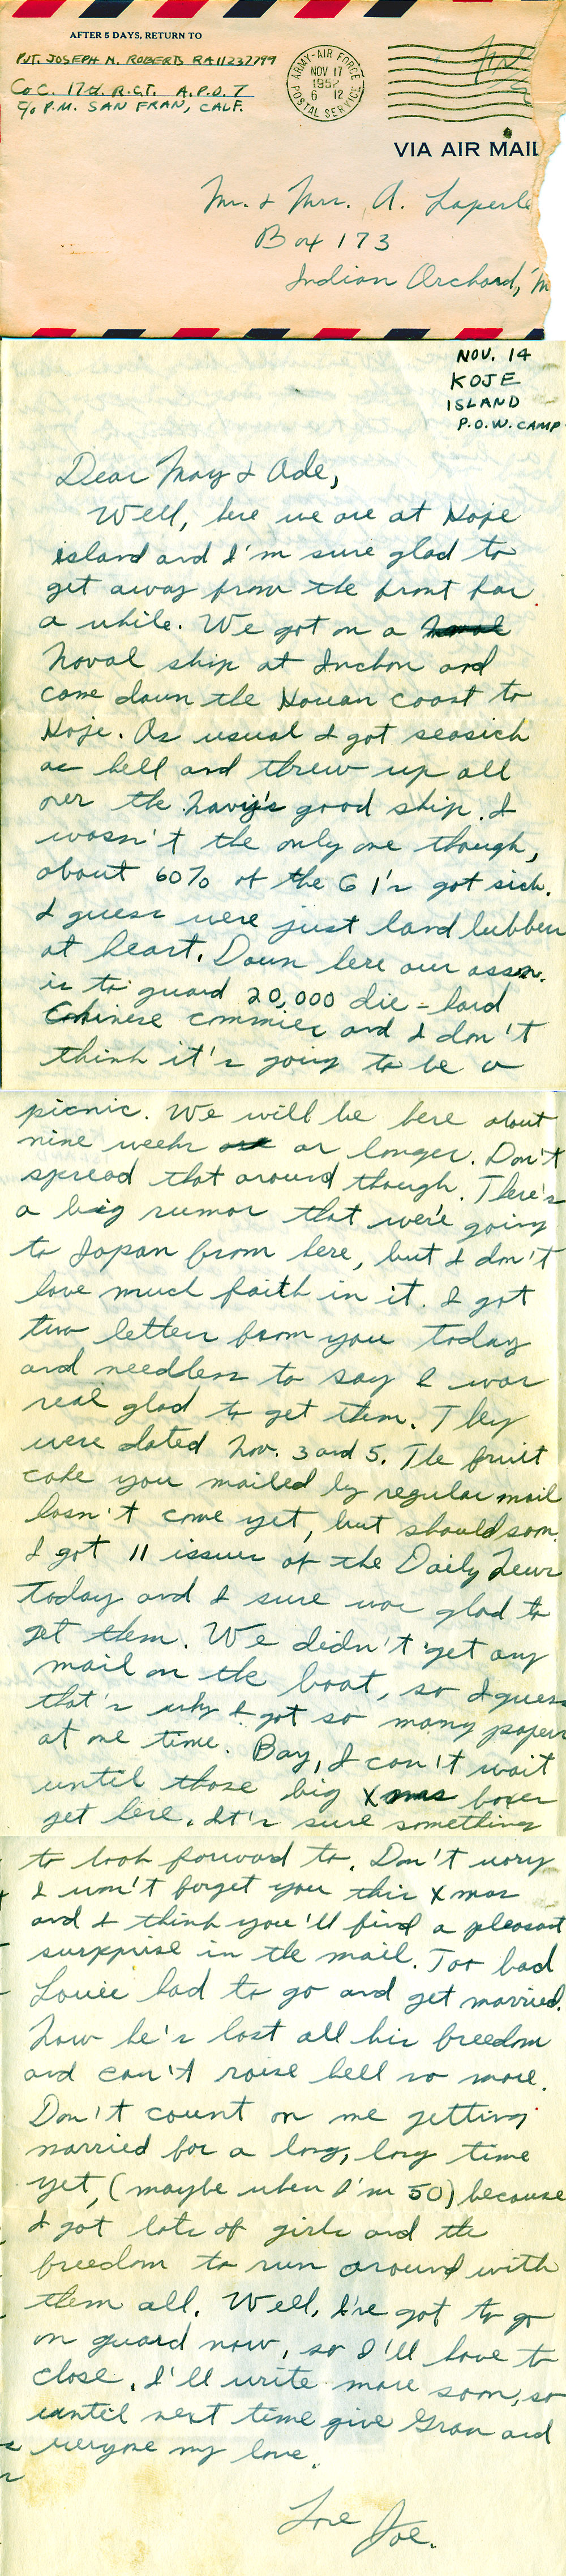 AFTER 5 DAYS, RETURN TO
PVT. JOSEPH N. ROBERTS RA11237799
Co C. 17th. R.C.T. A.P.O. 7
C/o P.M. SAN FRAN, CALF.
ARMY-AIR FORCE
NOV 17
1952
6 12
POSTAL SERVICE
VIA AIR MAIL
Mr. & Mrs. A. Laperle
Box 173
Indian Orchard, M
NOV. 14
KOJE
ISLAND
P.O.W. CAMP
Dear May & Ade,
Well, here we are at Koje
island and I'm sure glad to
get away from the front for
a while. We got on a
Naval ship at Inchon and
came down the Korean coast to
Koje. As usual I got seasick
as hell and threw up all
over the Navy's good ship. I
wasn't the only one though,
about 60% of the G I's got sick.
I guess were just land lubbers
at heart. Down here our assn.
is to guard 20,000 die-hard
Chinese commies and I don't
think it's going to be a
picnic. We will be here about
nine weeks or longer. Don't
spread that around though. There's
a big rumor that we're going
to Japan from here, but I don't
have much faith in it. I got
two letters from you today
and needless to say I was
real glad to get them. They
were dated Nov. 3 and 5. The fruit
cake you mailed by regular mail
hasn't come yet, but should soon.
I got 11 issues of the Daily News
today and I sure was glad to
get them. We didn't get any
mail on the boat, so I guess
that's why I got so many papers
at one time. Boy, I can't wait
until those big Xmas boxes
get here. It's sure something
to look forward to. Don't worry
I won't forget you this Xmas
and I think you'll find a pleasant
surpprise in the mail. Too bad
Louie had to go and get married.
Now he's lost all his freedom
and can't raise hell no more.
Don't count on me getting
married for a long, long time
yet, (maybe when I'm 50) because
I got lots of girls and the
freedom to run around with
them all. Well, I've got to go
on guard now, so I'll have to
close. I'll write more soon, so
until next time give Gram and
everyone my love.
Love Joe.